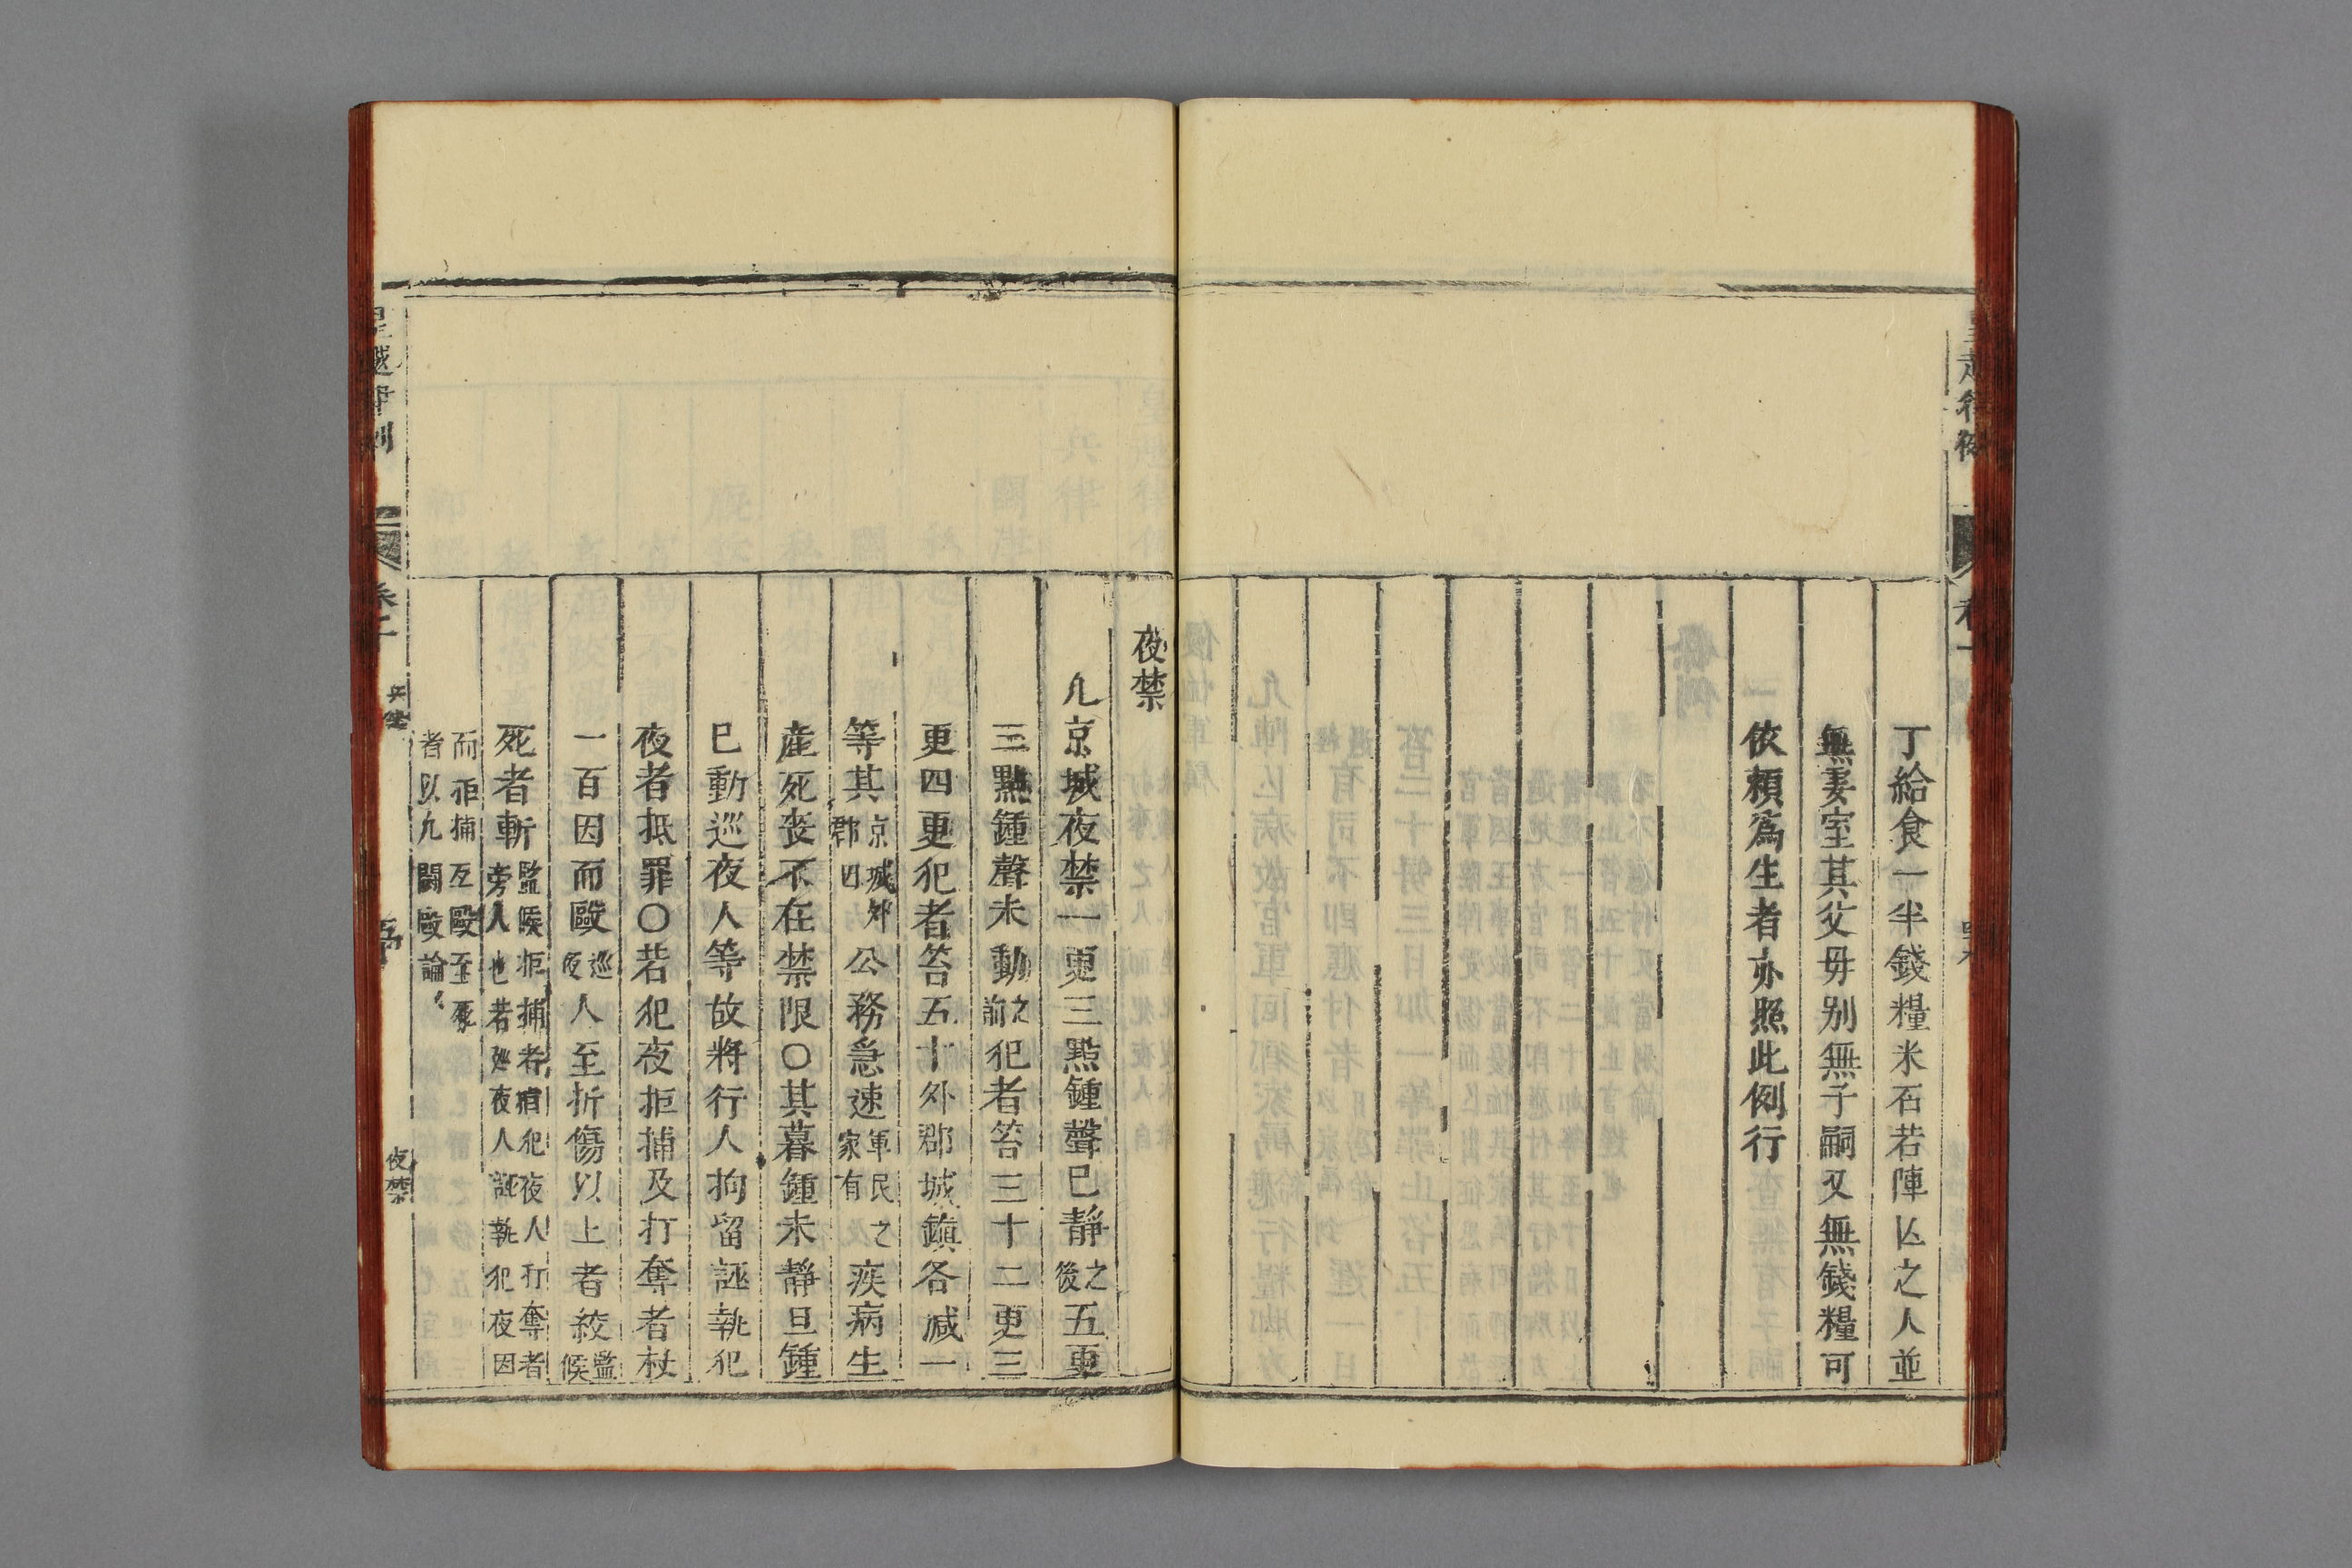 丁給食一半錢糧米石若陣亡之人並
無妻室其父毋别無子嗣又無錢糧可
依頼爲生者亦照此例行
夜禁
凢京城夜禁一更三㸃鍾聲已靜之後五更
三㸃鍾聲未動之前犯者笞三十二更三
更四更犯者笞五十外郡城鎮各减一
等其京城外郡因公務急速軍民之家有疾病生
產死䘮不在禁限〇其暮鍾未靜旦鍾
已動巡夜人等故將行人拘留誣執犯
夜者抵罪〇若犯夜拒捕及打奪者杖
一百因而毆巡夜人至折傷以上者絞監候
死者斬監候拒捕者猶犯夜人打奪者旁人也若廵夜人誣執犯夜因
而拒捕互毆至死者以凢鬬毆論
卷二
兵律
夜禁